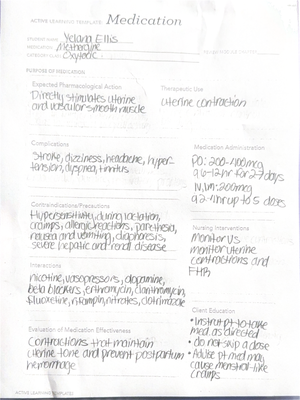 ACTIVE LEARNING TEMPLATE: Medication
STUDENT NAME Yelana Ellis
MEDICATION Methergine
CATEGORY CLASS Oxytocic
PURPOSE OF MEDICATION
Expected Pharmacological Action
Directly stimulates uterine
and vascular smooth muscle
Therapeutic Use
uterine contraction
Complications
Stroke, dizziness, headache, hyper-
tension, dyspnea, tinnitus
Medication Administration
PO: 200-400mcg
q 6-12hr for 2-7 days
IV, IM: 200mcg
q 2-4hr up to 5 doses
Contraindications/Precautions
Hypersensitivity, during lactation,
cramps, allergic reactions, paresthesia,
nausea and vomiting, diaphoresis,
severe hepatic and renal disease
Nursing Interventions
monitor VS
monitor uterine
contractions and
FHR
Interactions
nicotine, vasopressors, dopamine,
beta blockers, erithromycin, clarithromycin,
fluoxetine, rifampin, nitrates, clotrimazole
Client Education
• Instruct pt to take
med as directed
• do not skip a dose
• Advise pt med may
cause menstrual-like
cramps
Evaluation of Medication Effectiveness
Contractions that maintain
uterine tone and prevent postpartum
hemorrhage
ACTIVE LEARNING TEMPLATES